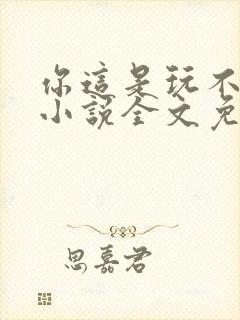 你這是玩不
小說全文免
思嘉君